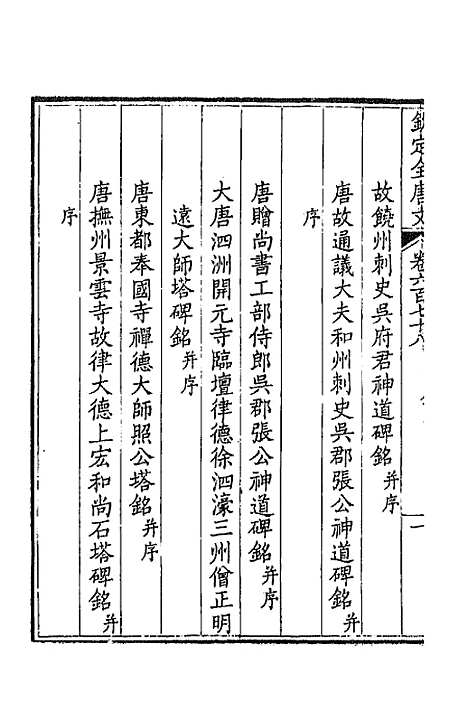 欽定全唐文 卷六百七十八 一
故饒州刺史吳府君神道碑銘并序
唐故通議大夫和州刺史吳郡張公神道碑銘并
序
唐贈尚書工部侍郎吳郡張公神道碑銘并序
大唐泗洲開元寺臨壇律德徐泗濠三州僧正明
遠大師塔碑銘并序
唐東都奉國寺禪德大師照公塔銘并序
唐撫州景雲寺故律大德上宏和尚石塔碑銘并
序